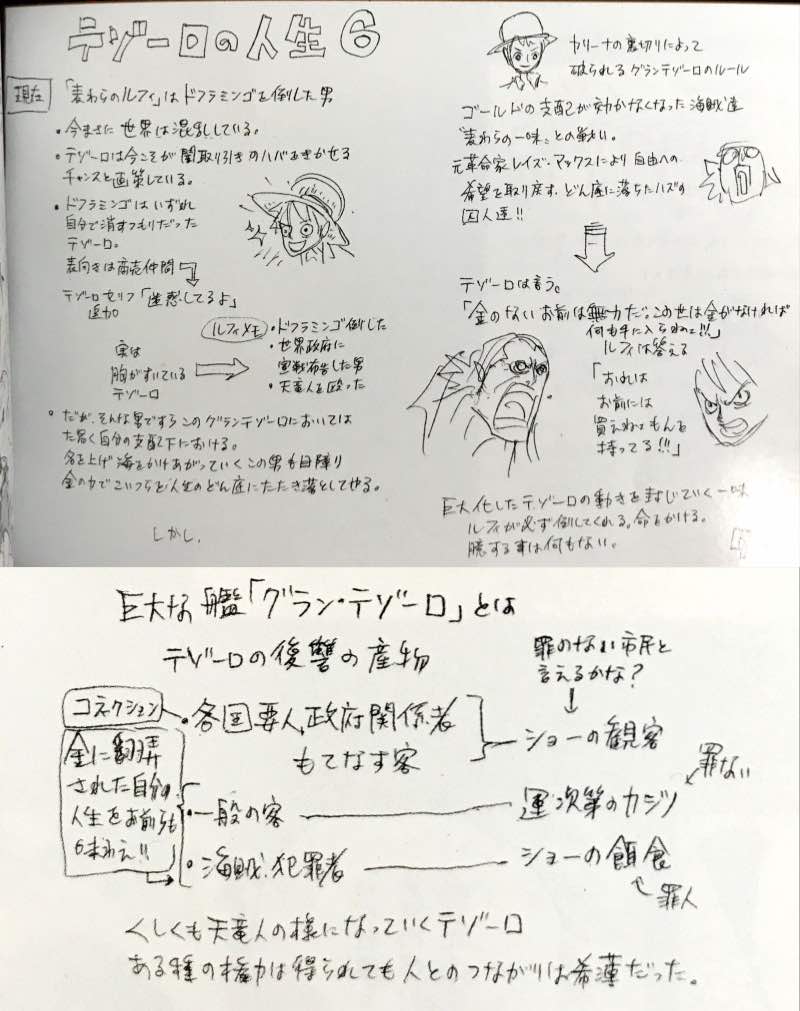 テゾーロの人生⑥
現在
「麦わらのルフィ」はドフラミンゴを倒した男
・今まさに世界は混乱している。
・テゾーロは今こそが闇取り引きのハバをきかせる
チャンスと画策している。
・ドフラミンゴはいずれ
自分で消すつもりだった
テゾーロ。
表向きは商売仲間
テゾーロセリフ「迷惑してるよ」
追加
実は
胸がすいている
テゾーロ
ルフィメモ
・ドフラミンゴ倒した
・世界政府に
宣戦布告した男
・天竜人を殴った
・だが、そんな男ですらこのグランテゾーロにおいては
た易く自分の支配下における。
名を上げ海をかけあがっていくこの男も目障り
金の力でこいつらを人生のどん底にたたき落としてやる。
しかし、
カリーナの裏切りによって
破られるグランテゾーロのルール
ゴールドの支配が効かなくなった海賊達
"麦わらの一味"との戦い。
元革命家レイズ・マックスにより自由への
希望を取り戻す、どん底に落ちたハズの
囚人達!!
テゾーロは言う。
「金のないお前は無力だ。この世は金がなければ
何も手に入らねェ!!」
ルフィは答える
「おれは
お前には
買えねェもんを
持ってる!!!」
巨大化したテゾーロの動きを封じていく一味
ルフィが必ず倒してくれる。命をかける。
臆する事は何もない。
巨大な艦「グラン・テゾーロ」とは
テゾーロの復讐の産物
罪のない市民と
言えるかな?
コネクション
・各国要人、政府関係者
もてなす客
ショーの観客
金に翻弄
された自分の
人生をお前らも
味わえ!!
罪ない
・一般の客
運次第のカジノ
・海賊、犯罪者
ショーの餌食
罪人
くしくも天竜人の様になっていくテゾーロ
ある種の権力は得られても人とのつながりは希薄だった。